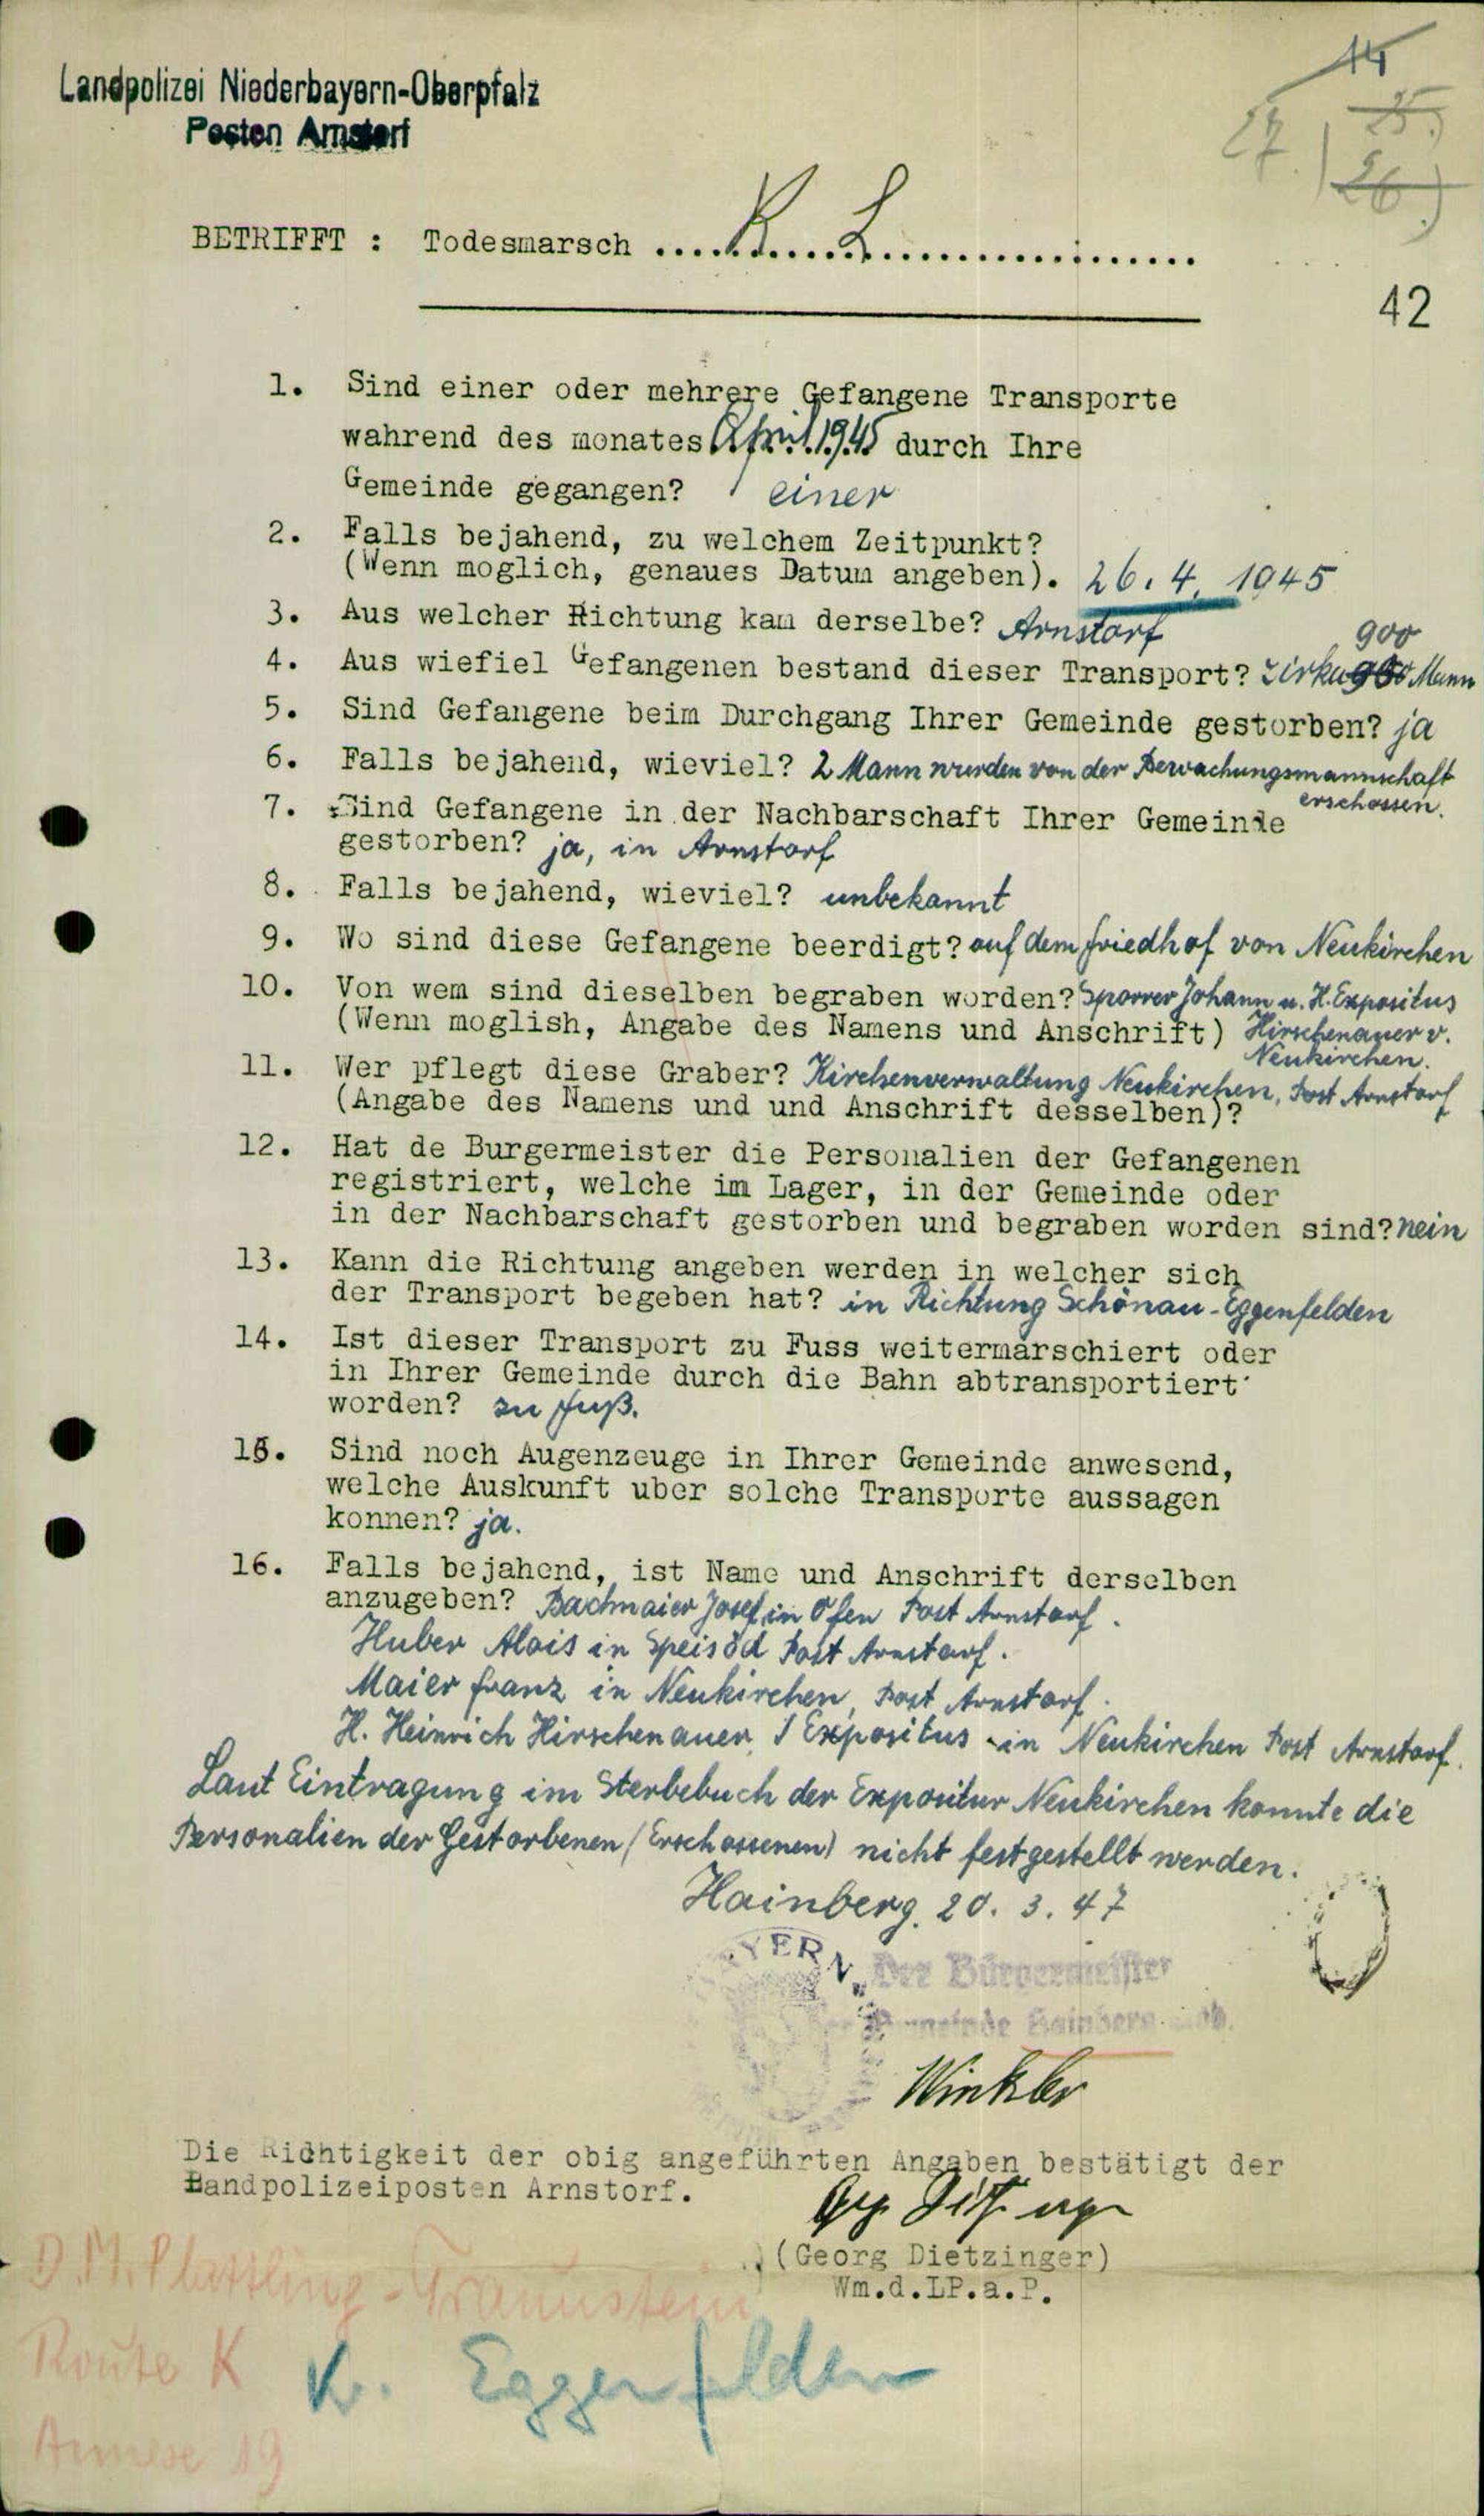 Landpolizei Niederbayern-Oberpfalz
Posten Arnstorf
14
25.
27.
26
BETRIFFT : Todesmarsch ....K....L..................
42
1. Sind einer oder mehrere Gefangene Transporte
wahrend des monates April 1945 durch Ihre
Gemeinde gegangen? einer
2. Falls bejahend, zu welchem Zeitpunkt?
(Wenn moglich, genaues Datum angeben). 26. 4. 1945
3. Aus welcher Richtung kam derselbe? Arnstorf
900
4. Aus wiefiel Gefangenen bestand dieser Transport? zirka Mann
5. Sind Gefangene beim Durchgang Ihrer Gemeinde gestorben? ja
6. Falls bejahend, wieviel? 2 Mann wurden von der Bewachungsmannschaft
erschossen.
7. Sind Gefangene in der Nachbarschaft Ihrer Gemeinde
gestorben? ja, in Arnstorf
8. Falls bejahend, wieviel? unbekannt
9. Wo sind diese Gefangene beerdigt? auf dem Friedhof von Neukirchen
10. Von wem sind dieselben begraben worden? Sporrer Johann u. H. Expositus
(Wenn moglish, Angabe des Namens und Anschrift) Hirschenauer v.
Neukirchen.
11. Wer pflegt diese Graber? Kirchenverwaltung Neukirchen, Post Arnstorf
(Angabe des Namens und und Anschrift desselben)?
12. Hat de Burgermeister die Personalien der Gefangenen
registriert, welche im Lager, in der Gemeinde oder
in der Nachbarschaft gestorben und begraben worden sind? nein
13. Kann die Richtung angeben werden in welcher sich
der Transport begeben hat? in Richtung Schönau-Eggenfelden
14. Ist dieser Transport zu Fuss weitermarschiert oder
in Ihrer Gemeinde durch die Bahn abtransportiert
worden? zu Fuß.
15. Sind noch Augenzeuge in Ihrer Gemeinde anwesend,
welche Auskunft uber solche Transporte aussagen
konnen? ja.
16. Falls bejahend, ist Name und Anschrift derselben
anzugeben? Bachmaier Josef in Ofen Post Arnstorf.
Huber Alois in Speisöd Post Arnstorf.
Maier Franz in Neukirchen, Post Arnstorf.
H. Heinrich Hirschenauer, Expositus in Neukirchen Post Arnstorf.
Laut Eintragung im Sterbebuch der Expositur Neukirchen konnte die
Personalien der Gestorbenen (Erschossenen) nicht festgestellt werden.
Hainberg, 20. 3. 47
Der Bürgermeister
Gemeinde Hainberg
Winkler
Die Richtigkeit der obig angeführten Angaben bestätigt der
Landpolizeiposten Arnstorf.
(Georg Dietzinger)
Wm.d.LP.a.P.
D.M. Plattling - Traunstein
Route K
Annexe 19
Kr. Eggenfelden